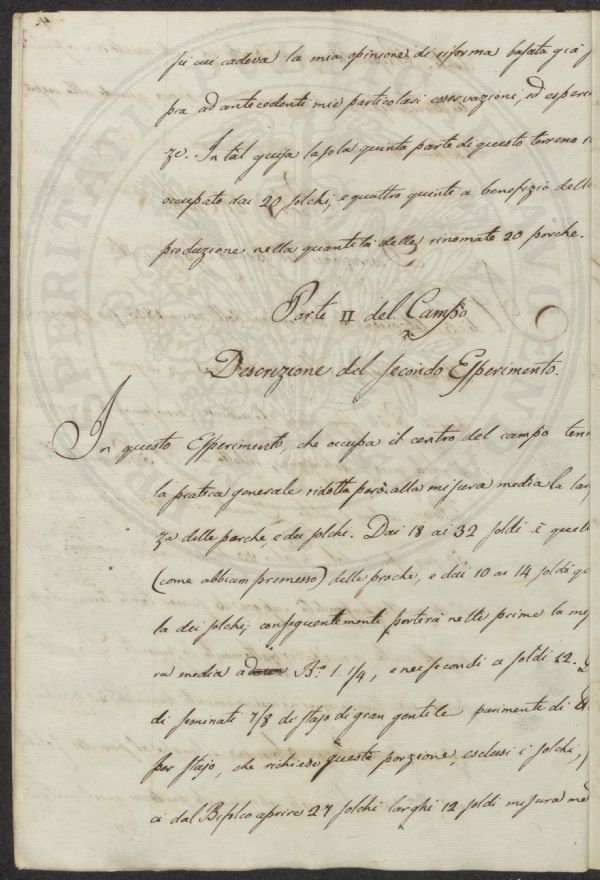 su cui cadeva la mia opinione di riforma basata già
pra ad antecedenti mie particolari osservazioni, ed esperi
ze. In tal guisa la sola quinta parte di questo terreno
occupato dai 20 solchi, e quattro quinti a benefizio della
produzione nella quantità delle rinomate 20 porche.
Parte II del Campo
Descrizione del secondo Esperimento.
In questo Esperimento, che occupa il centro del campo ten
la pratica generale ridotta però alla misura media la lar
za delle porche, e dei solchi. Dai 18 ai 32 soldi è quell
(come abbiam premesso) delle proche, e dai 10 ai 14 soldi qu
la dei solchi; conseguentemente porterà nelle prime la mis
ra media a B.ª 1. 1/4, e nei secondi a soldi 12.
di seminati 7/8 di stajo di gran gentile parimente di
per stajo, che richiese questa porzione, esclusi i solchi,
ci dal Bifolco aprire 27 solchi larghi 12 soldi misura me